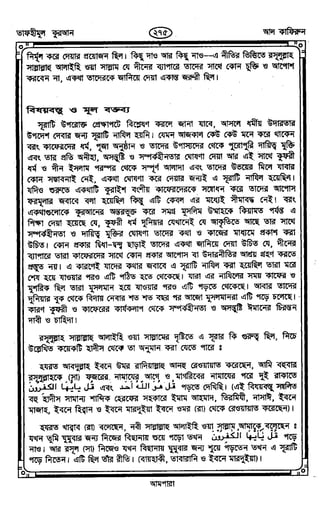 তাফহীমুল কুরআন
২৭৫
আল কাফিরুন
নির্মূল করে দেয়ার প্রয়োজন ছিল। কিছু দাও আর কিছু নাও—এ নীতির ভিত্তিতে রসূলুল্লাহ
সাল্লাল্লাহু আলাইহি ওয়া সাল্লাম যে দীনের ব্যাপারে তাদের সাথে কোন চুক্তি ও আপোশ
করবেন না, একথা তাদেরকে জানিয়ে দেয়া একান্ত জরুরী ছিল।
বিষয়বস্তু ও মূল বক্তব্য
সূরাটি উপরোক্ত প্রেক্ষাপটে বিশ্লেষণ করলে জানা যাবে, আসলে ধর্মীয় উদারতার
উপদেশ দেবার জন্য সূরাটি নাযিল হয়নি। যেমন আজকাল কেউ কেউ মনে করে থাকেন
বরং কাফেরদের ধর্ম, পূজা অনুষ্ঠান ও তাদের উপাস্যদের থেকে পুরোপুরি দায়িত্ব মুক্তি
এবং তার প্রতি অনীহা, অসন্তুষ্টি ও সম্পর্কহীনতার ঘোষণা দেয়া আর এই সাথে কুফরী
ধর্ম ও দীন ইসলাম পরস্পর থেকে সম্পূর্ণ আলাদা এবং তাদের উভয়ের মিলে যাবার
কোন সম্ভাবনাই নেই, একথা ঘোষণা করে দেয়ার জন্যই এ সূরাটি নাযিল হয়েছিল।
যদিও শুরুতে একথাটি কুরাইশ বংশীয় কাফেরদেরকে সম্বোধন করে তাদের আপোস
ফরমূলার জবাবে বলা হয়েছিল কিন্তু এটি কেবল এর মধ্যেই সীমাবদ্ধ নেই। বরং
একথাগুলোকে কুরআনের অন্তরভুক্ত করে সমগ্র মুসলিম উম্মাহকে কিয়ামত পর্যন্ত এ
শিক্ষা দেয়া হয়েছে যে, কুফরী ধর্ম দুনিয়ার যেখানেই যে আকৃতিতে আছে তার সাথে
সম্পর্কহীনতা ও দায়িত্ব মুক্তির ঘোষণা তাদের কথা ও কাজের মাধ্যমে প্রকাশ করা
উচিত। কোন প্রকার দ্বিধা-দ্বন্দ্ব ছাড়াই তাদের একথা জানিয়ে দেয়া উচিত যে, দীনের
ব্যাপারে তারা কাফেরদের সাথে কোন প্রকার আপোস বা উদারনীতির আশ্রয় গ্রহণ করতে
প্রস্তুত নয়। এ কারণেই যাদের কথার জবাবে এ সূরাটি নাযিল করা হয়েছিল তারা মরে
শেষ হয়ে যাওয়ার পরও এটি পঠিত হতে থেকেছে। যারা এর নাযিলের সময় কাফের ও
মুশরিক ছিল তারা মুসলমান হয়ে যাওয়ার পরও এটি পড়তে থেকেছে। আবার তাদের
দুনিয়ার বুক থেকে বিদায় নেবার শত শত বছর পর আজো মুসলমানরা এটি পড়ে চলেছে।
কারণ কুফরী ও কাফেরের কার্যকলাপ থেকে সম্পর্কহীনতা ও অসন্তুষ্টি ঈমানের চিরন্তন
দাবী ও চাহিদা।
রসূলুল্লাহ সাল্লাল্লাহু আলাইহি ওয়া সাল্লামের দৃষ্টিতে এ সূরার কি গুরুত্ব ছিল, নিচে
উল্লেখিত কয়েকটি হাদীস থেকে তা অনুমান করা যেতে পারে ঃ
হযরত আবদুল্লাহ ইবনে উমর রাদিয়াল্লাহু আনহু রেওয়ায়াত করেছেন, আমি বহুবার
রসূলুল্লাহকে (সা) ফজরের নামাযের আগে ও মাগরিবের নামাযের পরে দুই রাকাতে
قل يايها الكفرون এবং قل هو الله احد পড়তে দেখেছি। (এই বিষয়বস্তু সম্বলিত
বহু হাদীস সামান্য শাব্দিক হেরফের সহকারে ইমাম আহমাদ, তিরমিযী, নাসাঈ, ইবনে
মাজাহ, ইবনে হিব্বান ও ইবনে মারদুইয়া ইবনে ওমর (রা) থেকে রেওয়ায়াত করেছেন)।
হযরত খাব্বাব (রা) বলেছেন, নবী সাল্লাল্লাহু আলাইহি ওয়া সাল্লাম আমাকে বলেছেন ঃ
যখন তুমি ঘুমুবার জন্য নিজের বিছানায় শুয়ে পড়ো তখন قل يايها الكفرون পড়ে
নাও। আর রসূল (সা) নিজেও যখন বিছানায় ঘুমুবার জন্য শুয়ে পড়তেন তখন এ সূরাটি
পড়ে নিতেন। এটি ছিল তাঁর রীতি। (বায্‌যার, তাবারানি ও ইবনে মারদুইয়া)।
আমপারা